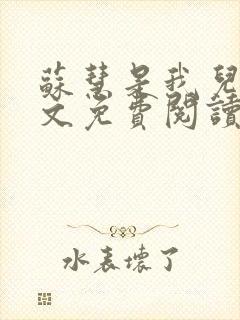 蘇慧是我兒
文免費閱讀
水表壞了